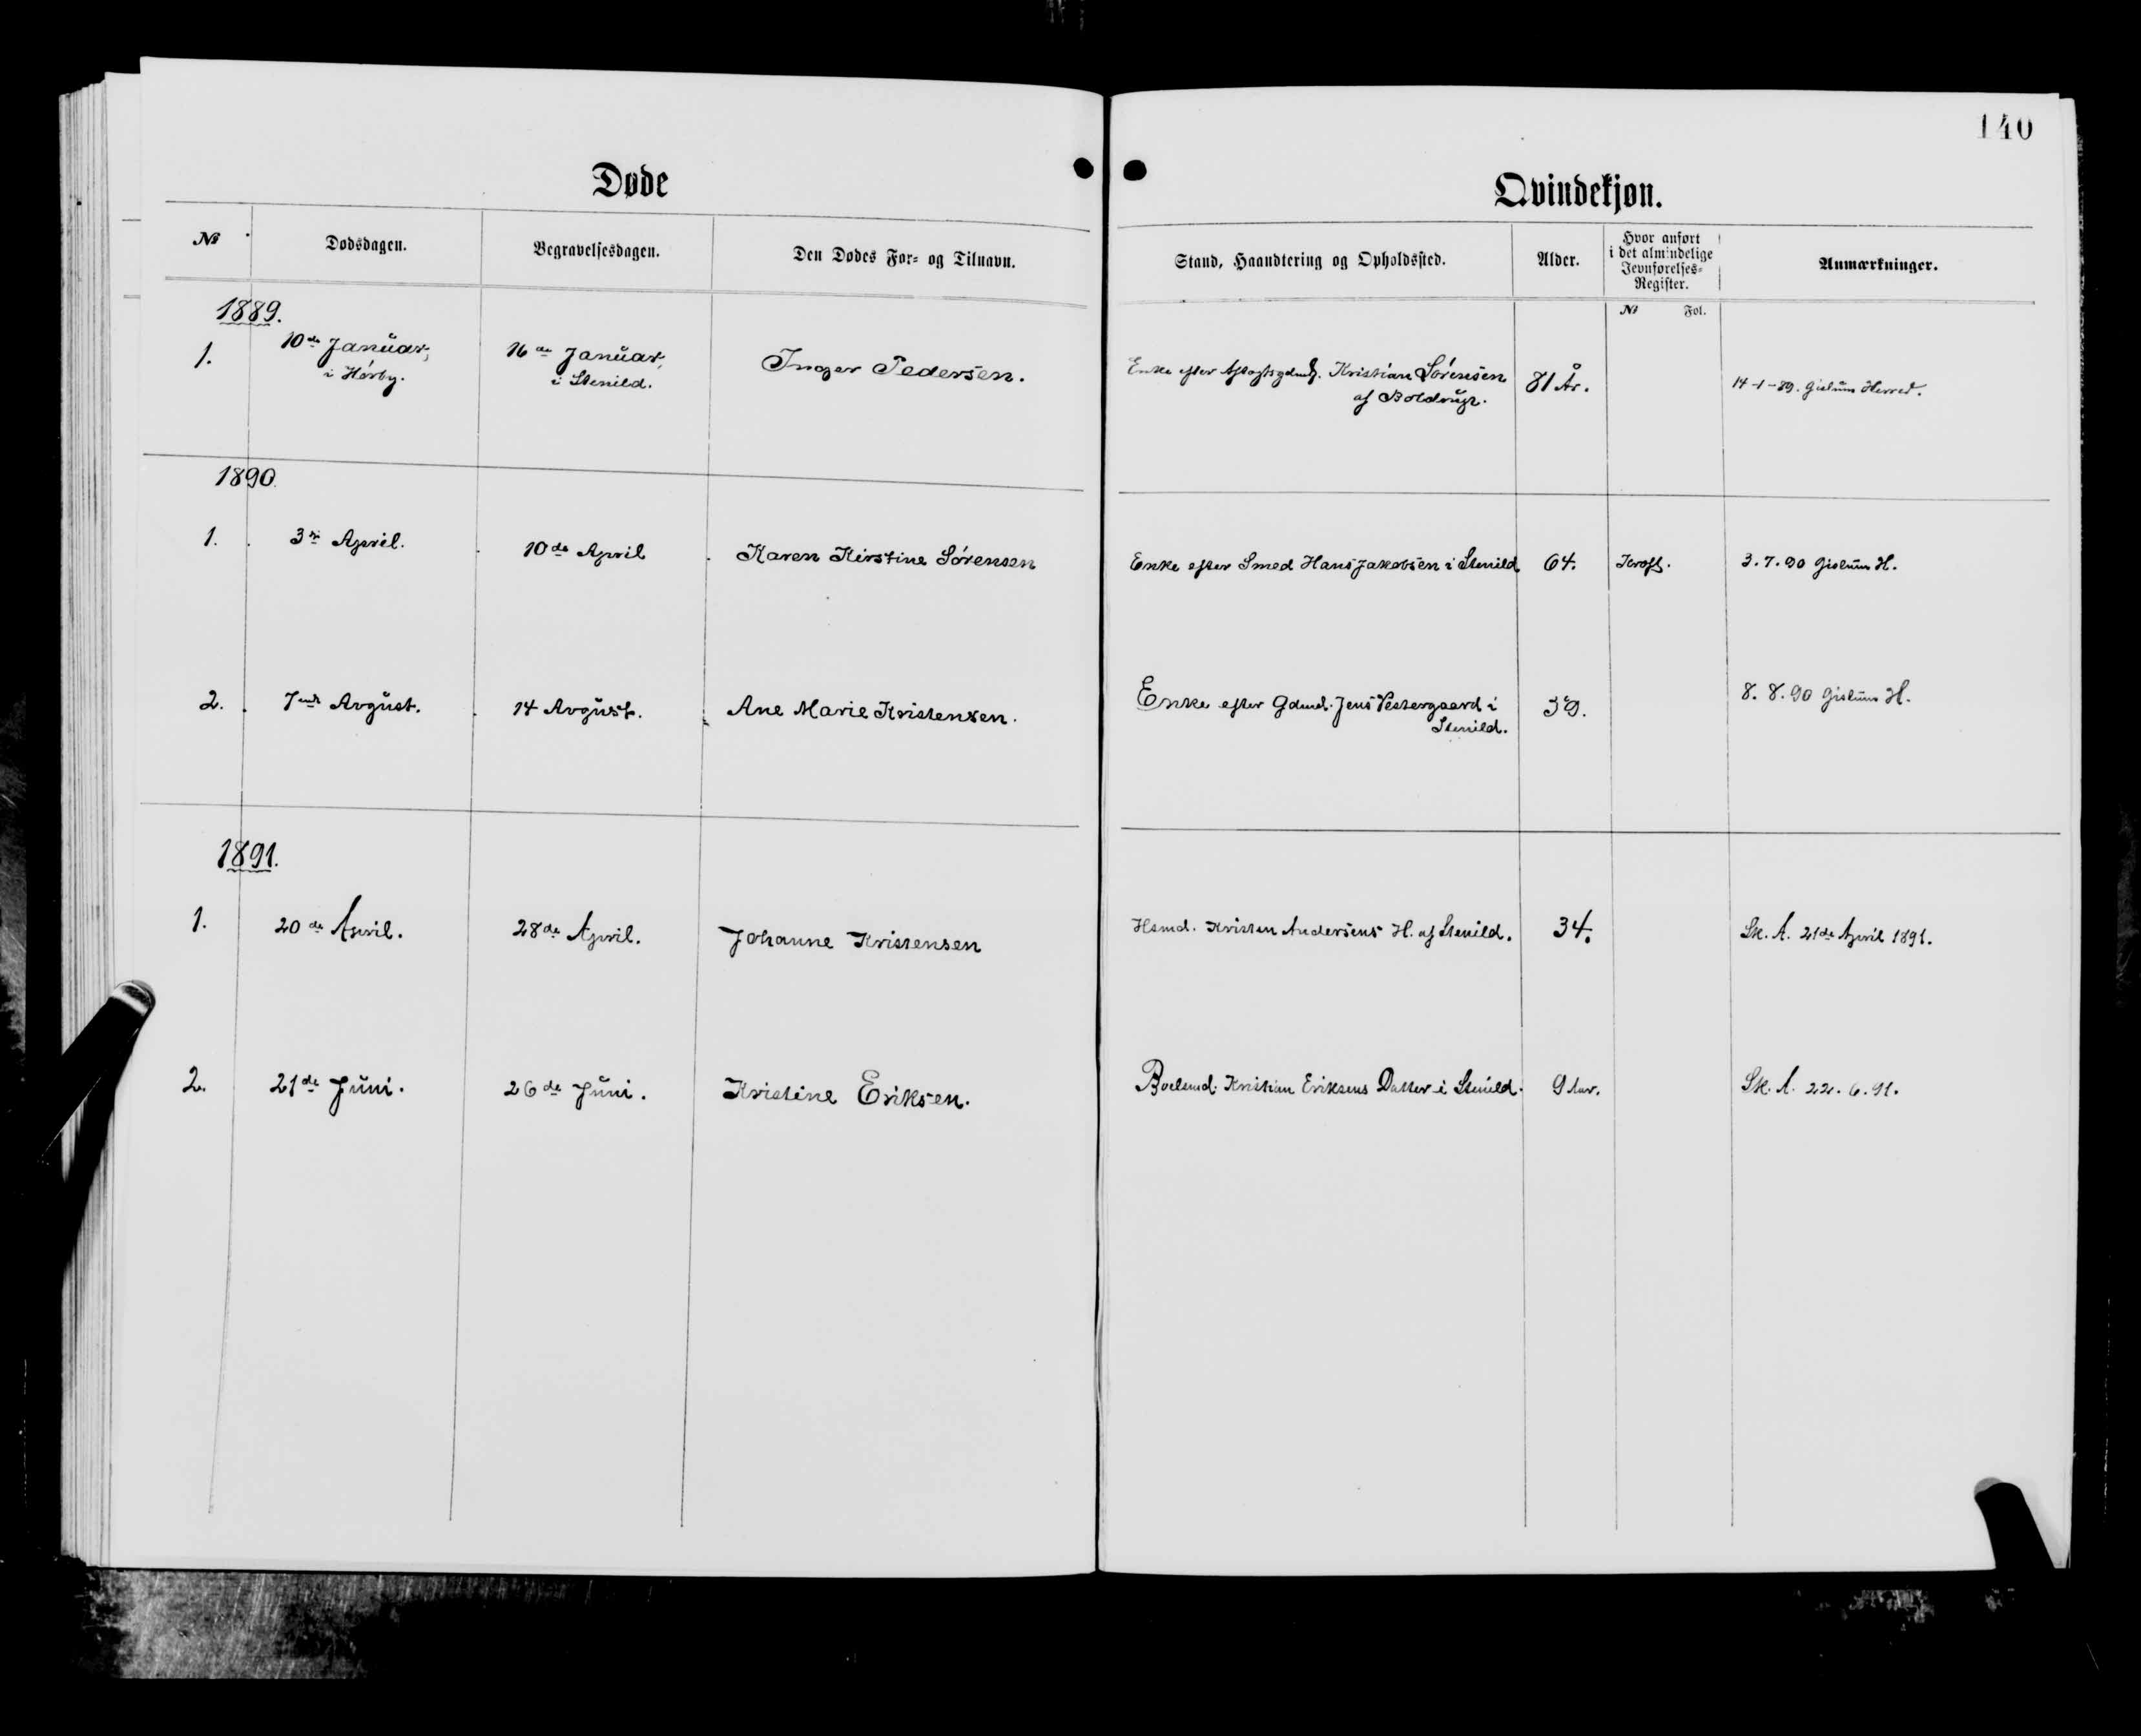 140
Døde
Qvindekjøn.
№
Dødsdagen.
Begravelsesdagen.
Den Dødes For- og Tilnavn.
Stand, Haandtering og Opholdssted.
Alder.
Hvor anført
i det almindelige
Jevnførelses-
Register.
Anmærkninger.
№ Fol.
1889.
1.
10de Januar,
i Hørby.
16de Januar,
i Stenild.
Inger Pedersen.
Enke efter Aftægtsgdmd. Kristian Sørensen
af Boldrup.
81 År.
14-1-89. Gislum Herred.
1890.
1.
3die April.
10de April
Karen Kirstine Sørensen
Enke efter Smed Hans Jakobsen i Stenild
64.
3.7.90 Gislum H.
2.
7nde Avgust.
14 Avgust.
Ane Marie Kristensen.
Enke efter Gdmd. Jens Vestergaard i
Stenild.
39.
8.8.90 Gislum H.
1891.
1.
20de April.
28de April.
Johanne Kristensen
Hsmd. Kristen Andersens H. af Stenild.
34.
Sk. A. 21de April 1891.
2.
21de Juni.
26de Juni.
Kristine Eriksen.
Boelsmd. Kristian Eriksens Datter i Stenild.
9 Aar.
Sk. A. 22.6.91.